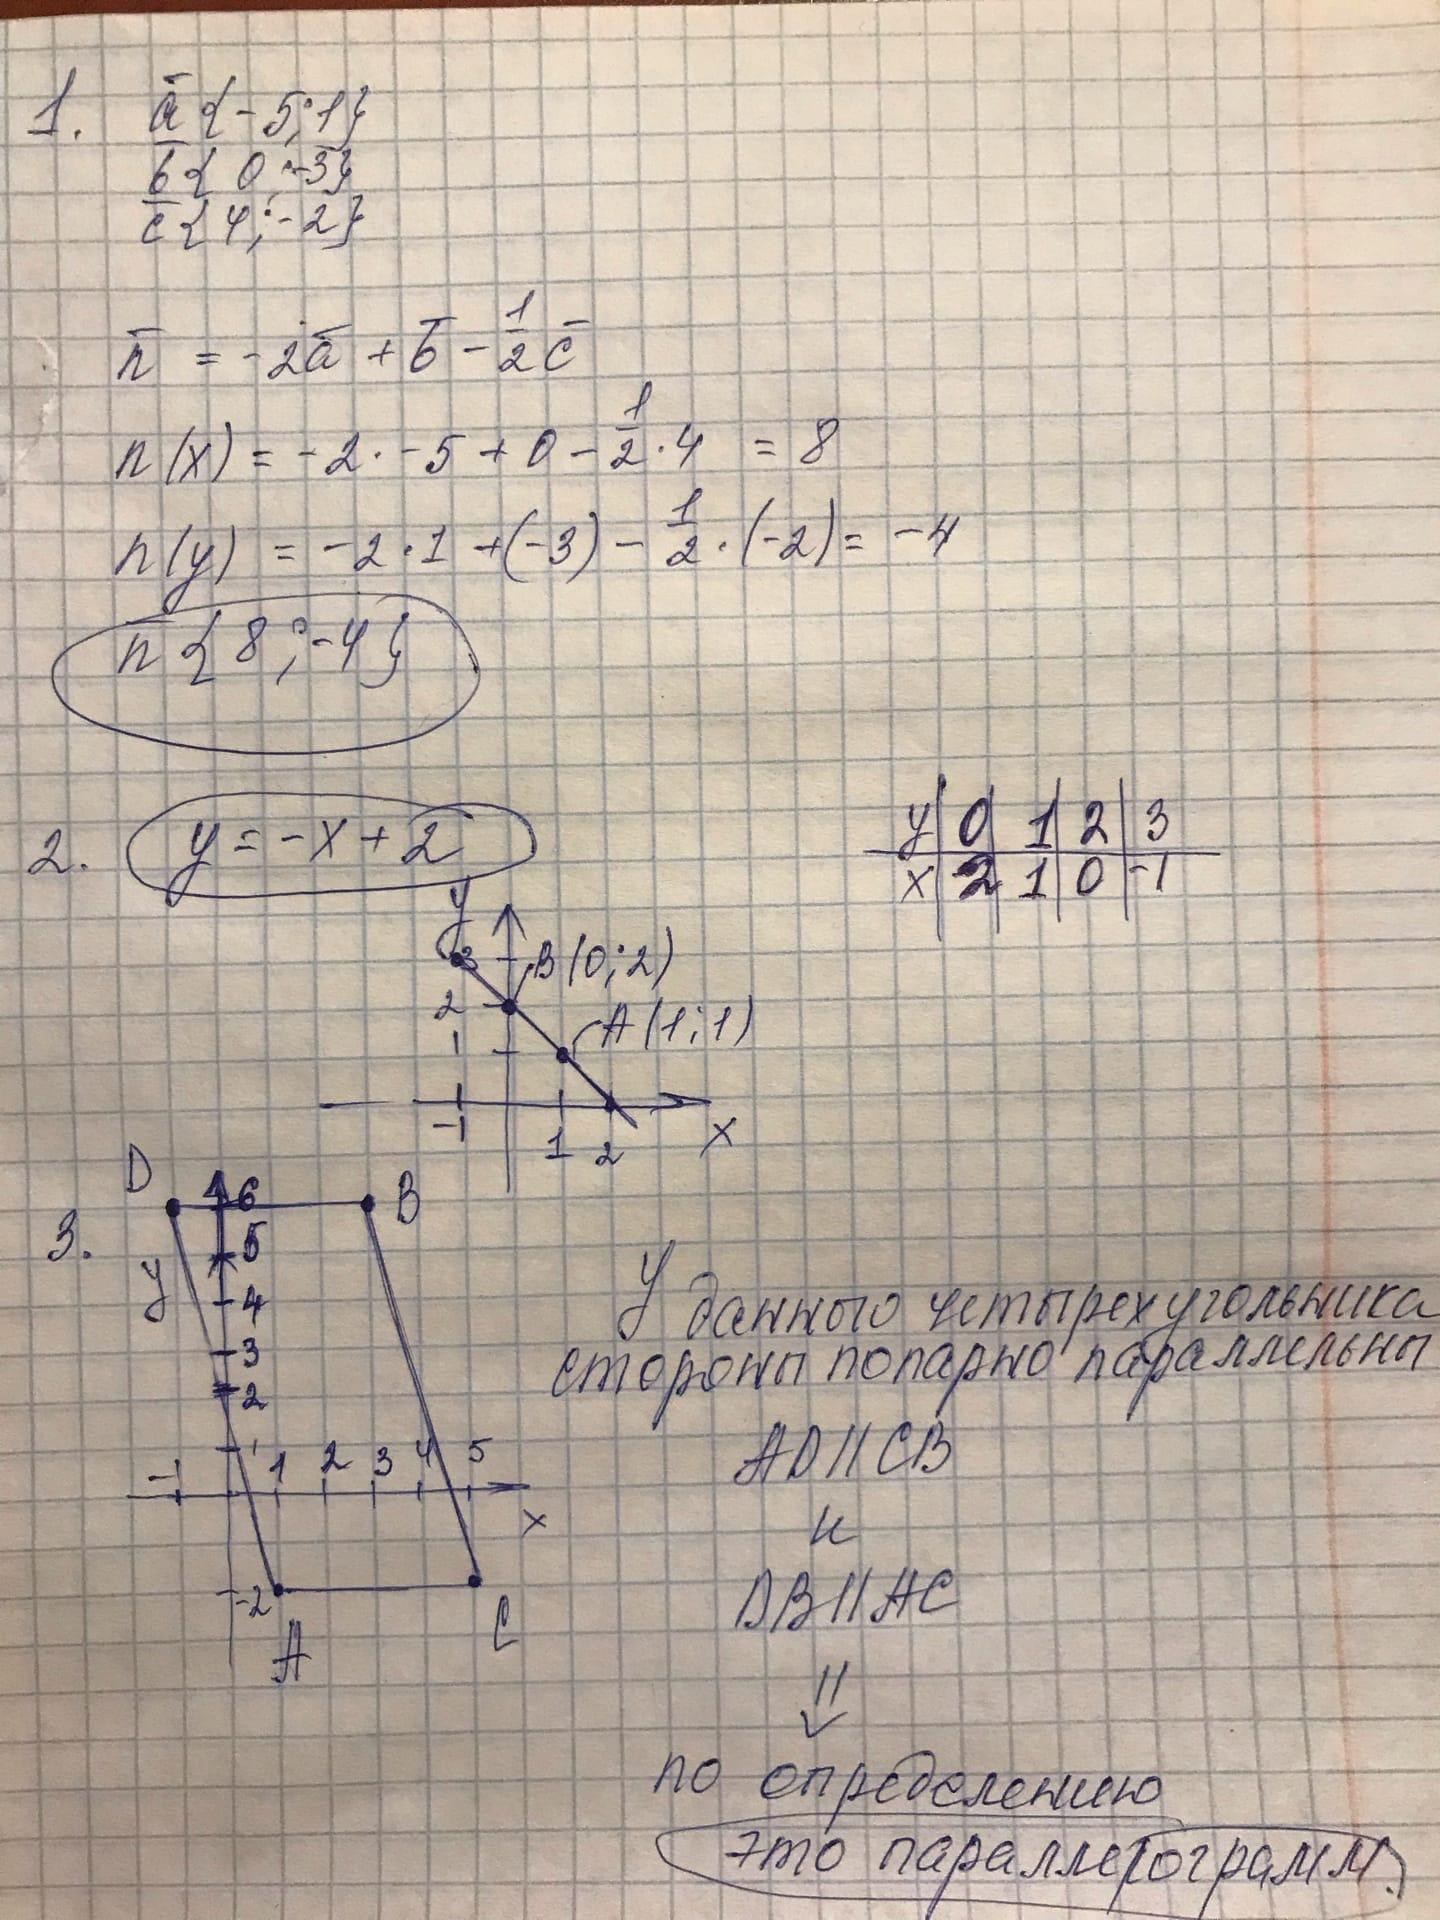 1. a̅ {-5;1}
b̅ { 0 ;-3}
c̅ {4;-2}
n̅ = -2a̅ + b̅ - 1/2 c̅
n(x) = -2 · -5 + 0 - 1/2 · 4 = 8
n(y) = -2 · 1 + (-3) - 1/2 · (-2) = -4
n̅ { 8 ; -4}
2. y = -x + 2
y 0 1 2 3
x 2 1 0 -1
y
3 B(0;2)
2 A(1;1)
1
-1 1 2 x
3. D 6 B
5
y 4
3
2
1
-1 1 2 3 4 5
x
-2
A C
У данного четырехугольника
стороны попарно параллельны
AD || CB
и
DB || AC
⇓
по определению
это параллерограмм.